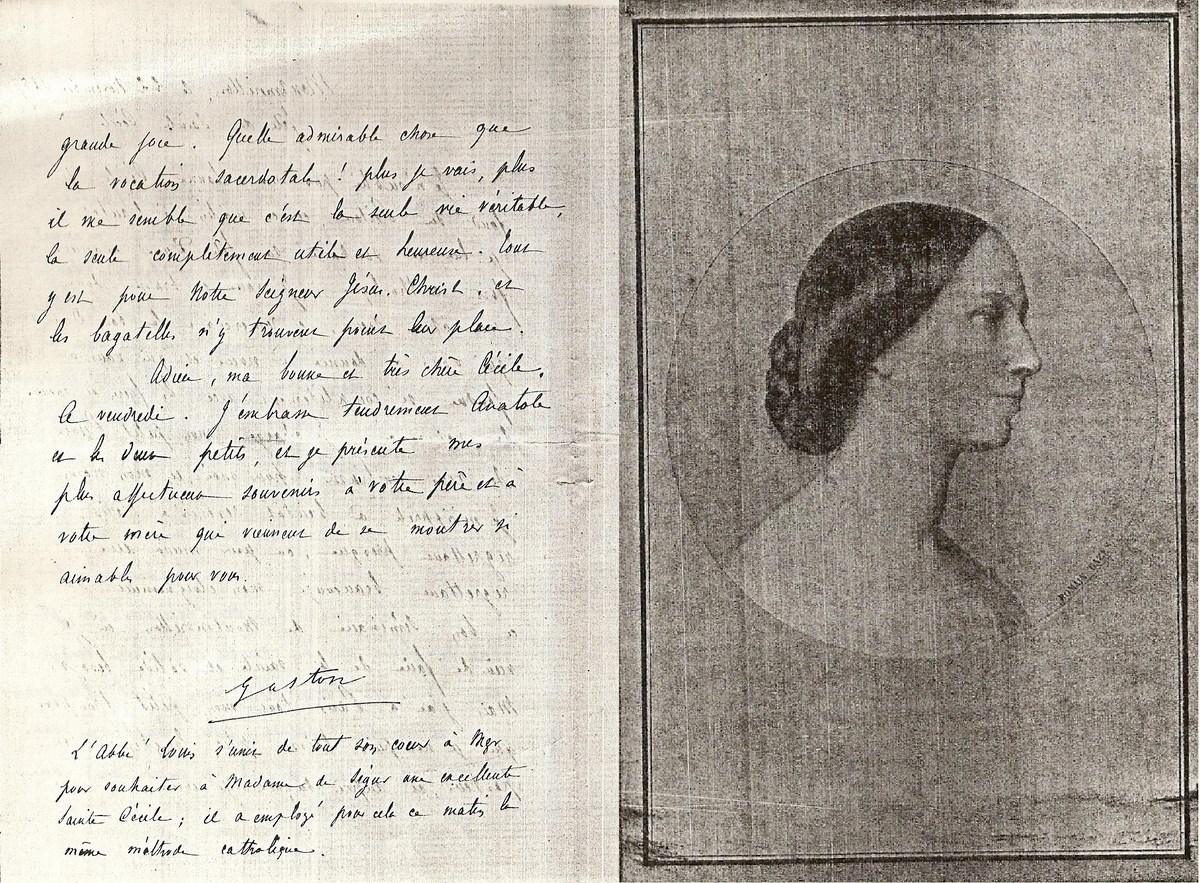 grande joie. Quelle admirable chose que
la vocation sacerdotale ! plus je vais, plus
il me semble que c'est la seule vie véritable,
la seule complètement utile et heureuse. Tout
y est pour Notre Seigneur Jésus. Christ, et
les bagatelles n'y trouvent point leur place.
Adieu, ma bonne et très chère Cécile.
A vendredi. J'embrasse tendrement Anatole
et les deux petits, et je présente mes
plus affectueux souvenirs à votre père et à
votre mère qui viennent de se montrer si
aimables pour vous.
Gaston
L'Abbé Louis s'unit de tout son coeur à Mgr
pour souhaiter à Madame de Ségur une excellente
Sainte Cécile ; il a employé pour cela ce matin la
même méthode catholique.